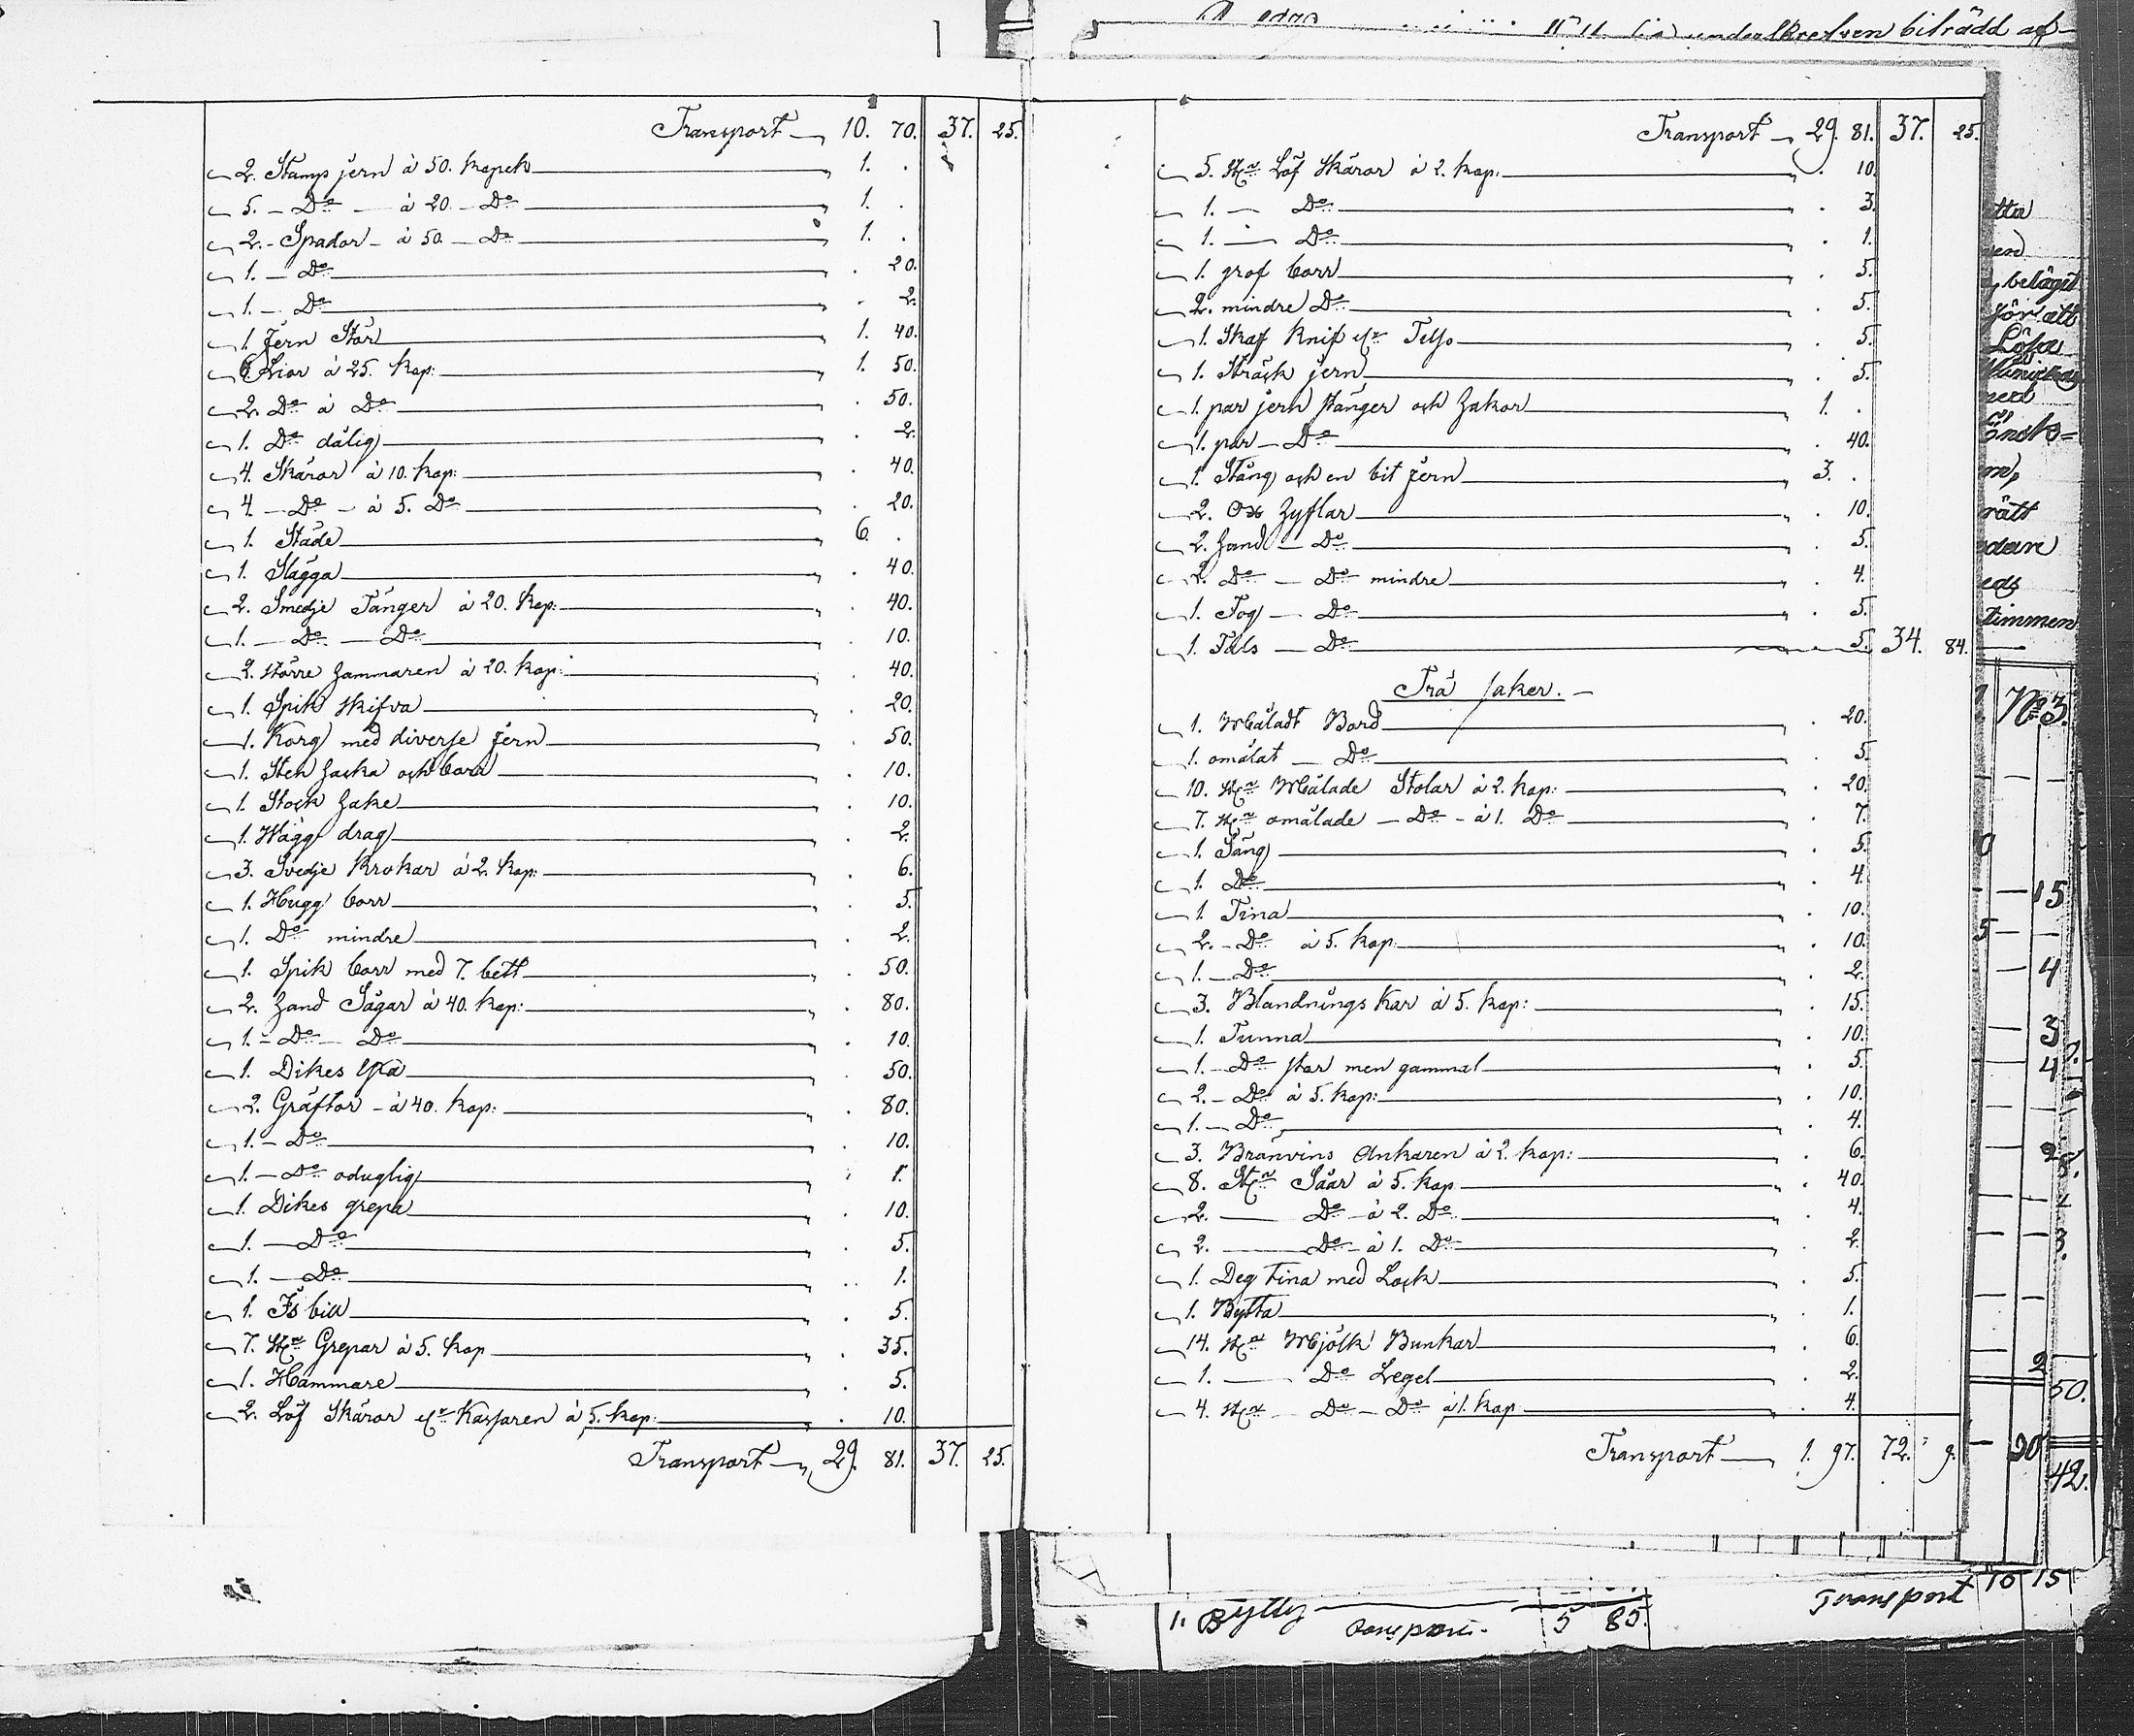 Transport 10. 70. 37. 25.
2. Stamp jern à 50. kopek 1. .
5. - Do - à 20. - Do 1. .
2. - Spador - à 50. - Do 1. .
1. - Do . 20.
1. - Do . 2.
1. Jern Stör 1. 40.
6. Liar à 25. kop: 1. 50.
2. Do à Do . 50.
1. Do dålig . 2.
4. Skäror à 10. kop: . 40.
4. - Do - à 5. Do . 20.
1. Städe 6. .
1. Slägga . 40.
2. Smedje Tänger à 20. kop: . 40.
1. - Do - Do . 10.
2. större hammaren à 20. kop: . 40.
1. Spik skifva . 20.
1. Korg med diverse Jern . 50.
1. Sten hacka och borr . 10.
1. Stock hake . 10.
1. Wägg drag . 2.
3. Svedje Krokar à 2. kop: . 6.
1. Hugg borr . 5.
1. Do mindre . 2.
1. Spik borr med 7. bett . 50.
2. hand Sågar à 40. kop: . 80.
1. - Do - Do . 10.
1. Dikes . 50.
2. Gräftor - à 40. kop: . 80.
1. - Do . 10.
1. - Do oduglig . 1.
1. Dikes grepa . 10.
1. - Do . 5.
1. - Do . 1.
1. Is bill . 5.
7. St. Grepar à 5. kop . 35.
1. Hammare . 5.
2. Löf Skäror à 5. kop: . 10.
Transport 29. 81. 37. 25.
undersökelsen biträdd af
Transport 29. 81. 37. 25.
5. St. Löf Skäror à 2. kop: . 10.
1. - Do . 3.
1. - Do . 1.
1. grof borr . 5.
2. mindre Do . 5.
1. Skaf Knif . 5.
1. Sträck jern . 5.
1. par jern stänger och hakor 1. .
1. par - Do . 40.
1. Stång och en bit Jern 3. .
2. Ox hyflar . 10.
2. hand - Do . 5.
2. Do - Do mindre . 4.
1. Fog - Do . 5.
1. Fals - Do . 5. 34. 84.
Trä saker. -
1. Måladt Bord . 20.
1. omålat - Do . 5.
10. St. Målade Stolar à 2. kop: . 20.
7. St. omålade - Do - à 1. Do . 7.
1. Säng . 5.
1. Do . 4.
1. Tina . 10.
2. - Do à 5. kop . 10.
1. - Do . 2.
3. Blandnings Kar à 5. kop: . 15.
1. Tunna . 10.
1. - Do stor men gammal . 5.
2. - Do à 5. kop: . 10.
1. - Do . 4.
3. Bränvins Ankaren à 2. kop: . 6.
8. St. Såar à 5. kop . 40.
2. - Do - à 2. Do . 4.
2. - Do - à 1. Do . 2.
1. Deg tina med Lock . 5.
1. Bytta . 1.
14. St. Mjölk Bunkar . 6.
1. - Do Legel . 2.
4. St. - Do - Do à 1. kop . 4.
Transport 1. 97. 72. 9.
beläget
för att
rätt
timmen
No 3.
15
4
3
4
2
50.
20
42.
Transport 10 15
1. Bytta
5 85.